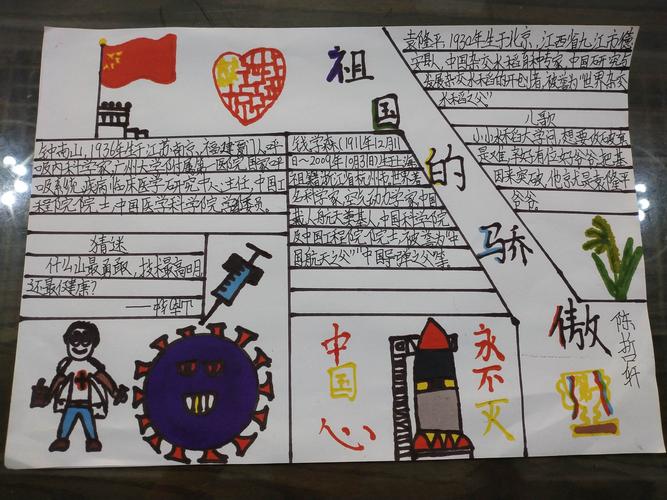 祖
国
的
骄
傲
袁隆平,1930年生于北京,江西省九江市德
安县人,中国杂交水稻育种专家,中国研究与
发展杂交水稻的开创者,被誉为"世界杂交
水稻之父"
儿歌
小小水稻大学问,想要
是难,幸好有位好爷爷,把基
因来突破,他就是袁隆平
爷爷。
钟南山,1936年生于江苏南京,福建厦门人,呼
吸内科学家,广州大学附属第一医院国家呼
吸系统疾病临床医学研究中心主任,中国工
程院院士,中国医学科学院
钱学森(1911年12月11
日~2009年10月31日)生于上海
祖籍浙江省杭州市,世界著
名科学家,空气动力学家,中国
载人航天奠基人,中国科学院
及中国工程院院士,被誉为"中
国航天之父""中国导弹之父"等。
猜迷
什么山最勇敢,技术最高明
还最保健康?
中
国
心
永
不
灭
陈哲轩